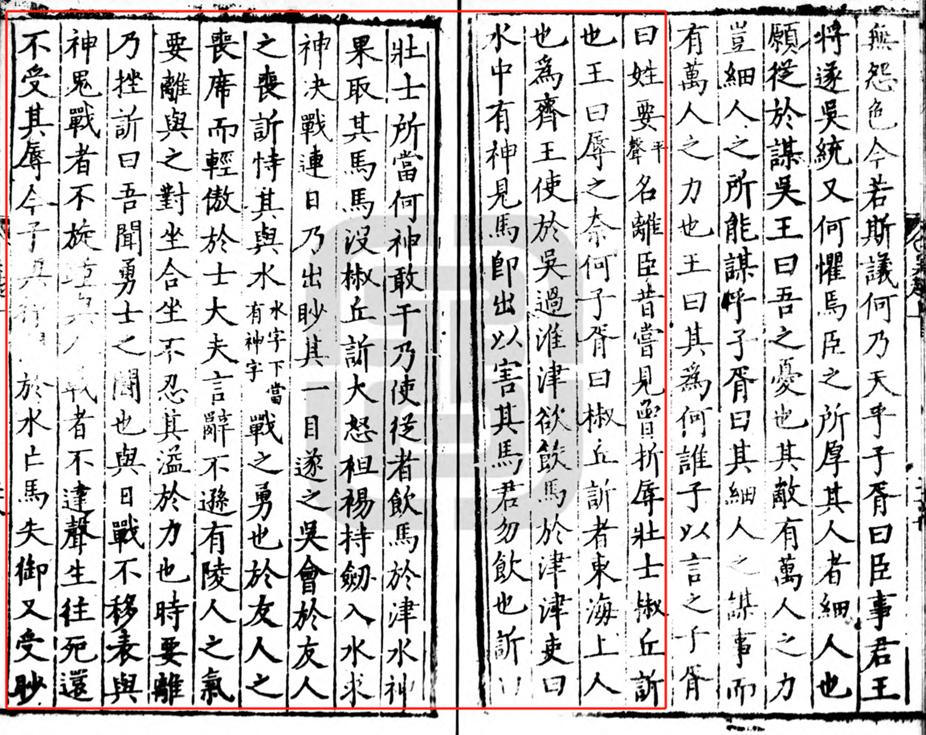 無怨色今若斯議何乃天乎子胥曰臣事君王
將遂吳統又何懼焉臣之所厚其人者細人也
願從於謀吳王曰吾之憂也其敵有萬人之力
豈細人之所能謀乎子胥曰其細人之謀事而
有萬人之力也王曰其為何誰子以言之子胥
曰姓要平聲名離臣昔嘗見曾折辱壯士椒丘訢
也王曰辱之奈何子胥曰椒丘訢者東海上人
也為齊王使於吳過淮津欲飲馬於津津吏曰
水中有神見馬即出以害其馬君勿飲也訢曰
壯士所當何神敢干乃使從者飲馬於津水神
果取其馬馬沒椒丘訢大怒袒裼持劒入水求
神决戰連日乃出眇其一目遂之吳會於友人
之喪訢恃其與水水字下當有神字戰之勇也於友人之
喪席而輕傲於士大夫言辭不遜有陵人之氣
要離與之對坐合坐不忍其溢於力也時要離
乃挫訢曰吾聞勇士之鬬也與日戰不移表與
神鬼戰者不旋踵與人戰者不達聲生往死還
不受其辱今子與神 於水亡馬失御又受眇